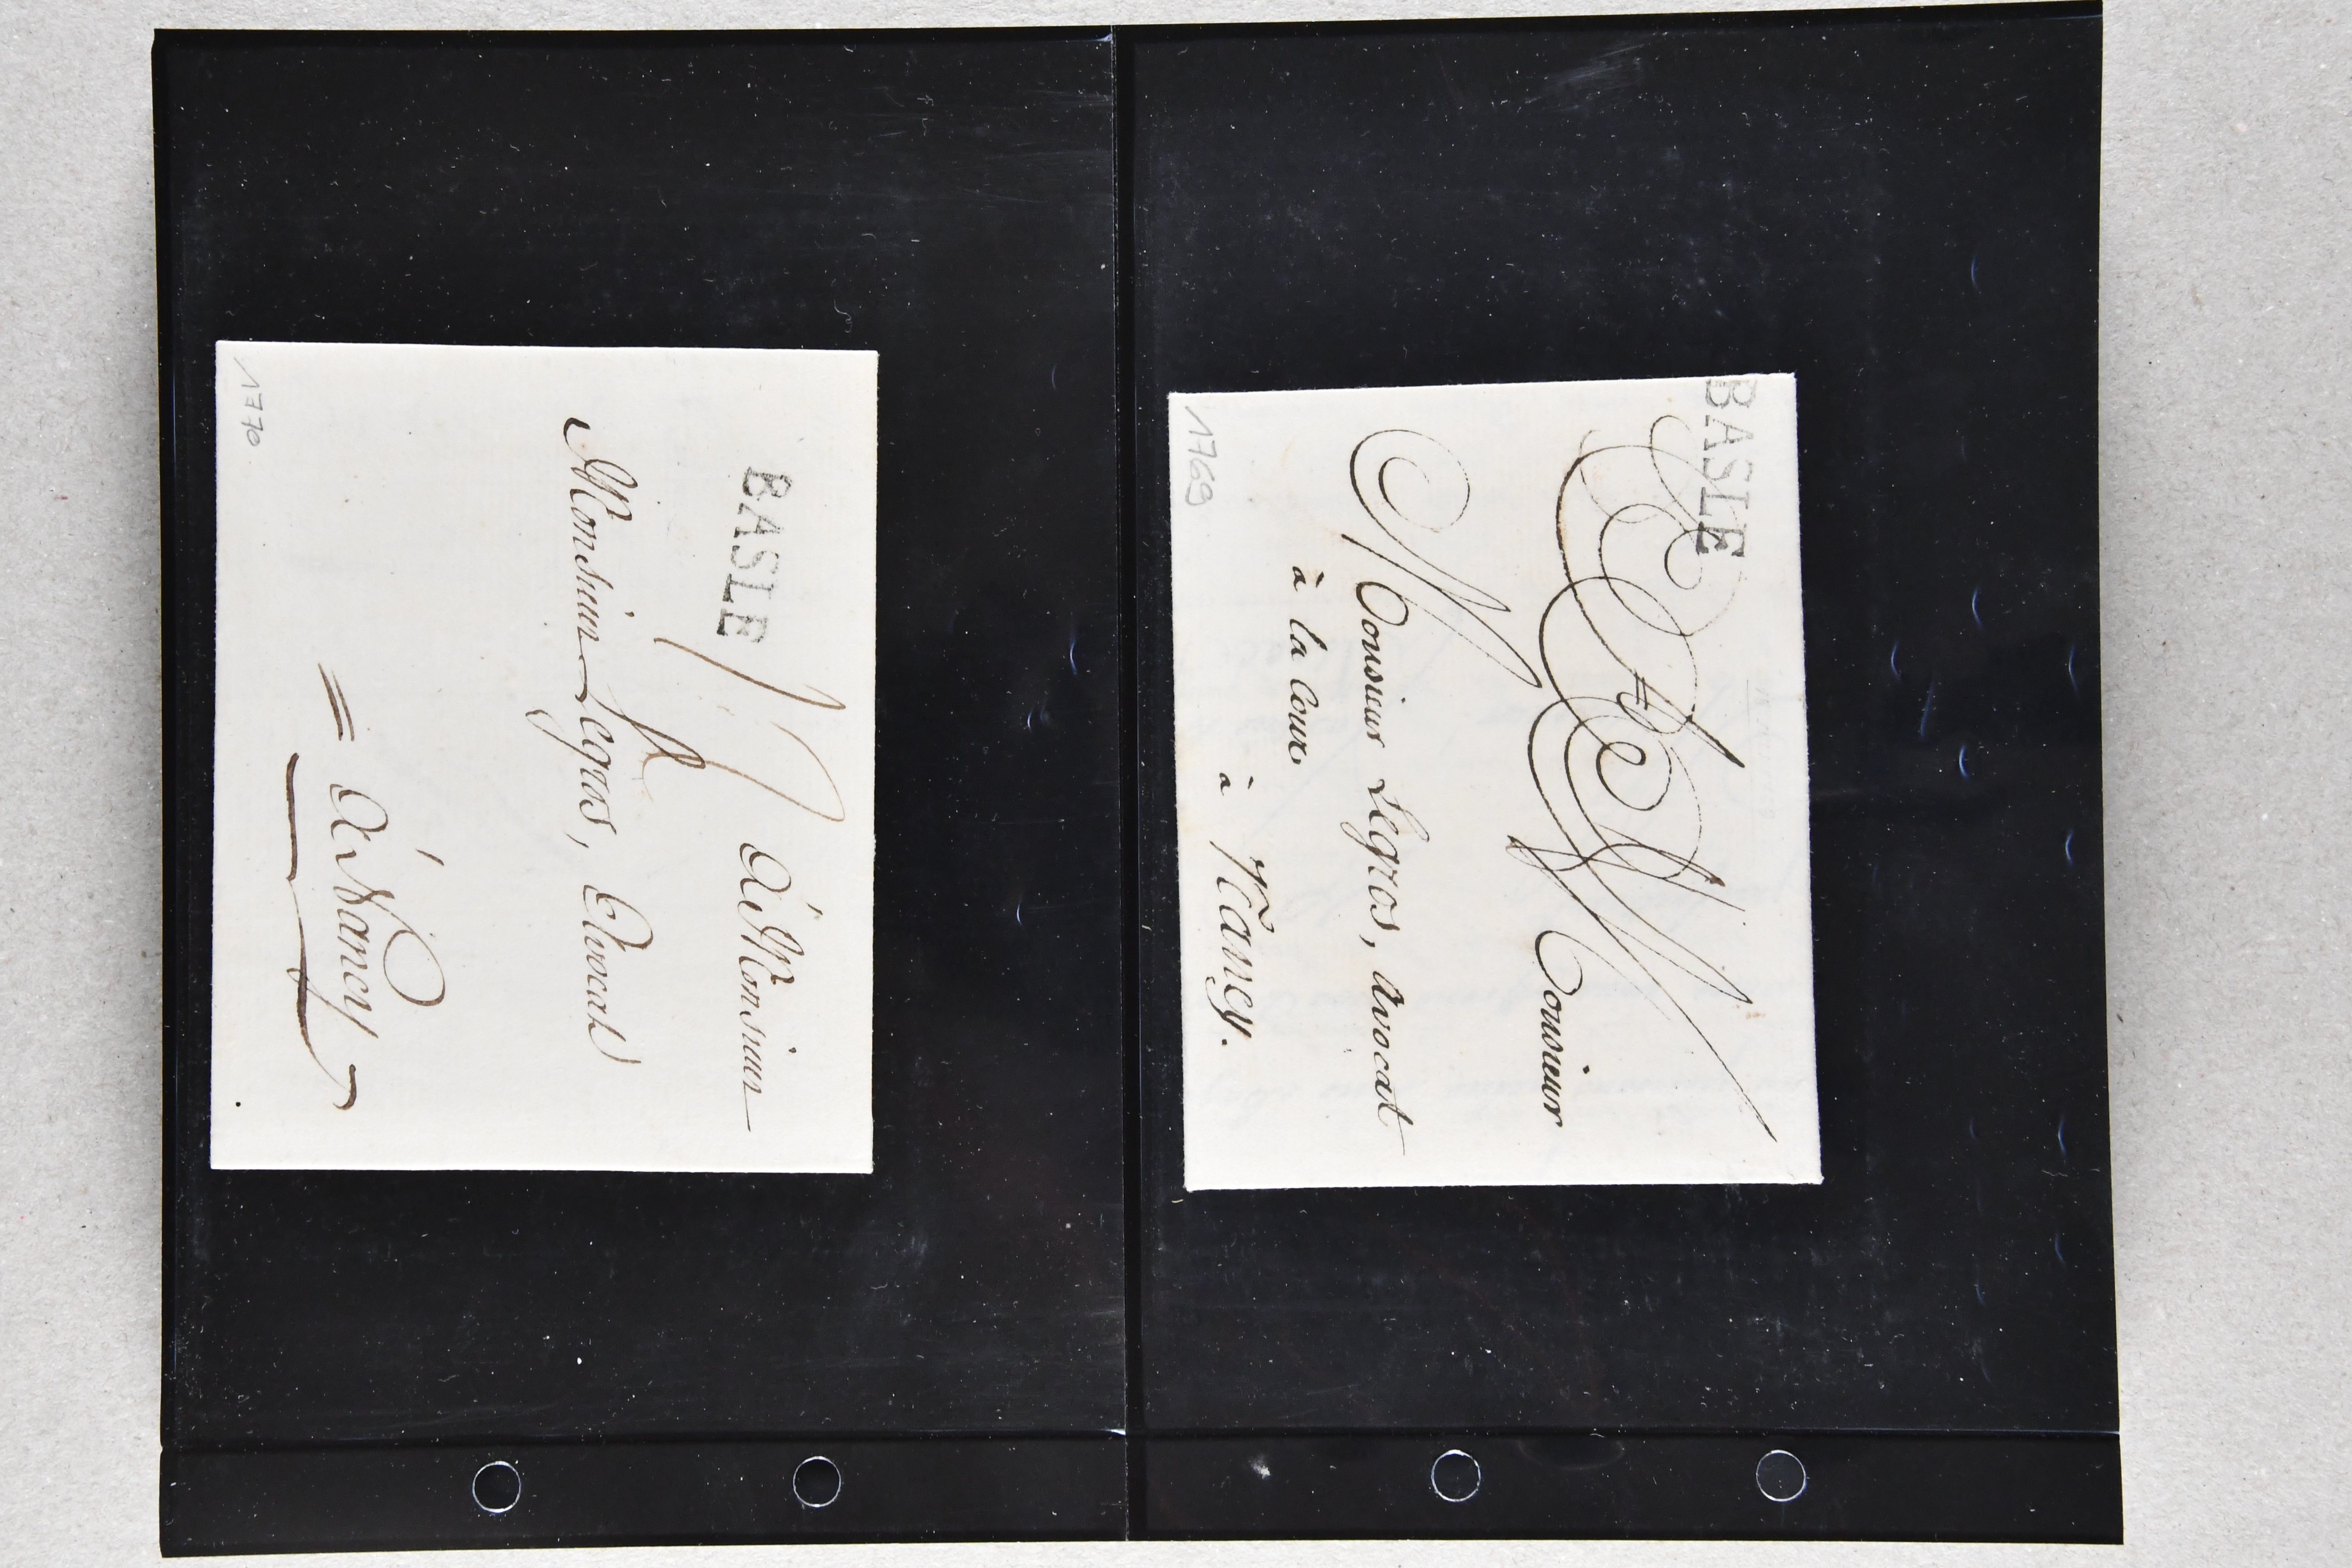 BASLE
A Monsieur
Monsieur Legros, avocat
à la Cour
à Nancy.
1769
BASLE
A Monsieur
Monsieur Legros, Avocat
= A Nancy
1770